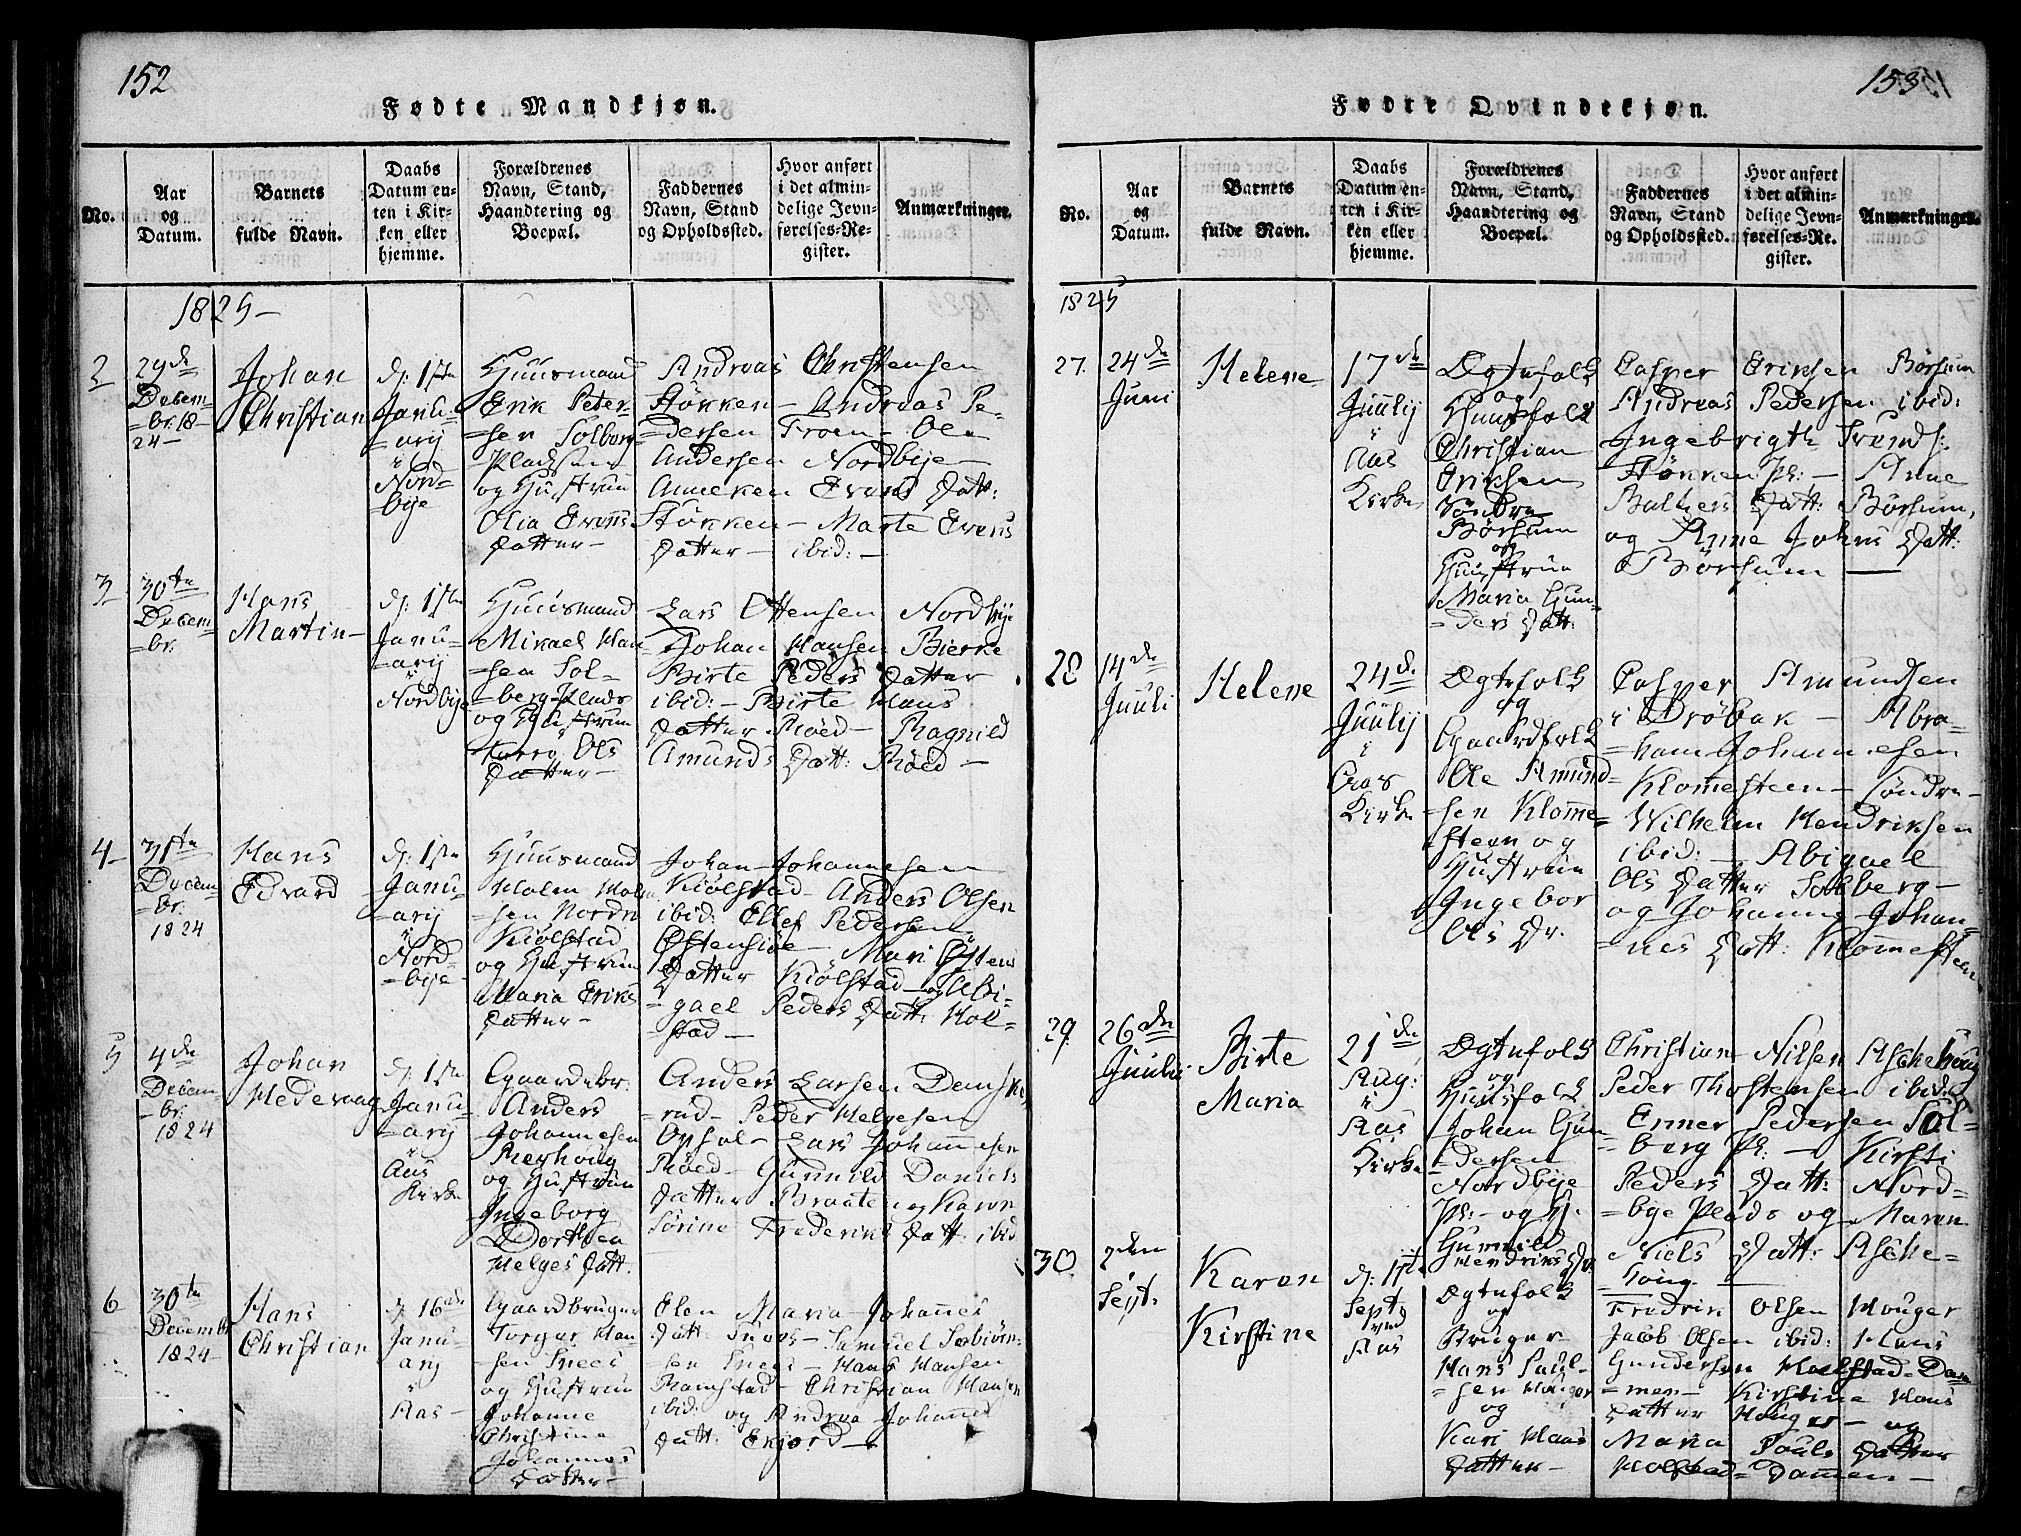 152
Fødte Mandkjøn.
No.
Aar
og
Datum.
Barnets
fulde Navn.
Daabs
Datum en-
ten i Kir-
ken eller
hjemme.
Forældrenes
Navn, Stand,
Haandtering og
Boepæl.
Faddernes
Navn, Stand
og Opholdssted.
Hvor anført
i det almin-
delige Jevn-
førelses-Re-
gister.
Anmærkninger.
1825-
2
29de
Decem-
=br. 18-
24-
Johan
Christian
d: 1ste
Janu-
=arij
i
Nord-
bije
Huusmand
Erik Peter-
sen Solberg
Pladsen
og Hustrue
Olia Evens
Datter-
Andreas Christensen
Støkken- Andreas Pe-
=dersen Froen- Ole
Andersen Nordbije-
Anneken Evens Datt:
Støkken- Marte Evens
Datter- ibid:-
3
30te
Decem-
=br.
Hans
Martin-
d: 1ste
Janu-
=arij
i
Nordbije
Huusmand
Mikael Han
=sen Sol-
=berg-Plads
og Hustrue
Karen Ols
Datter-
Lars Ottensen Nordbije
Johan Hansen Bierke
Birte Peders Datter
ibid:- Birte Hans
Datter Røed- Ragnild
Amunds Datt: Røed-
4-
31te
Decem-
=br.
1824
Hans
Edvard
d: 1ste
Janu-
=arij
i
Nord-
=bije-
Huusmand
Holm Holm
=sen Nordre
Kiølstad
og Hustrue
Maria Eriks
Datter-
Johan Johannesen
Kiølstad- Anders Olsen
ibid: Ellef Pedersen
Østensiøe- Mari Østens
Datter Kiølstad- og Abi-
=gael Peders Datt: Kol-
=stad-
5
4de
Decem-
=br.
1824
Johan
Hedevaag
d: 1ste
Janu-
=arij
i
Aas
Kirke
Gaardebr:
Anders
Johannesen
Reyhoug
og Hustrue
Ingeborg
Dorthea
Helges Datt:
Anders Larsen Damske-
=rud- Peder Helgesen
Opsal- Lars Johannesen
Røed- Gunnild Daniels
Datter Braaten og Karen
Sørine Frederiks Datt: ibid
6
30te
Decembr
1824-
Hans
Christian
d: 16de
Janu-
=arij
i
Aas-
Gaardbruger
Torger Han-
=sen Sneis
og Hustrue
Johanne
Christine
Johannes
Datter-
Elen Maria Johanes
Datt: Snees- Samuel Sebiørn-
=sen Snees- Hans Hansen
Ramstad- Christian Hansen
ibid: og Andrea Johannes
Datt: Ekjord-
153
Fødte Qvindekjøn.
No.
Aar
og
Datum.
Barnets
fulde Navn.
Daabs
Datum en-
ten i Kir-
ken eller
hjemme.
Forældrenes
Navn, Stand,
Haandtering og
Boepæl.
Faddernes
Navn, Stand
og Opholdssted.
Hvor anført
i det almin-
delige Jevn-
førelses-Re.
gister.
Anmærkninger.
1825
27.
24de
Juni
Helene
17de
Juulij
i
Aas
Kirke
Ægtefolk
og
Huusfolk
Christian
Eriksen
Søndre
Børsum
og
Hustrue
Maria Gun-
=ders Datt:
Casper Eriksen Børsum
Andreas Pedersen ibid:
Ingebrigth Trends:
Støkken Pl:- Anne
Balhers Datt: Børsum,
og Anne Johns Datt:
Børsum-
28
14de
Juuli
Helene
24de
Juulij
i
Aas
Kirke
Ægtefolk
og
Gaardfolk
Ole Amund=
=sen Klomme=
steen og
Hustrue
Ingebor
Ols Dr.
Casper Amundsen
i Drøbak- Abra-
=ham Johannesen
Klomesteen- Søndre-
Wilhelm Hendriksen
ibid:- Abigael
Ols Datter Solberg-
og Johanne Johan-
=nes Datt: Klommesteen
29
26de
Juuli
Birte
Maria
21de
Aug:
i
Aas
Kirke
Ægtefolk
og
Huusfolk
Johan Gun
=dersen
Nordbije
Pl:- og H.
Gunnild
Hendriks Dr.
Christian Nilsen Aschehoug
Peder Thorstensen ibid:
Enner Pedersen Sol-
=berg Pl:- Kirsti
Peders Datt: Nord=
=bye Plads og Maren
Niels Datt: Asche-
=houg.
30
2den
Sept:
Karen
Kirstine
d: 11te
Septr
ved
Aas
Ægtefolk
og
Bruger
Hans Paul-
=sen Houger
og
Kari Hans
Datter-
Fredrik Olsen Houger
Jacob Olsen ibid: Hans
Gundersen Holstad-Dam
=men- Kirstine Hans
Datter Houger- og
Maria Pouls Datter
Holstad=Dammen-